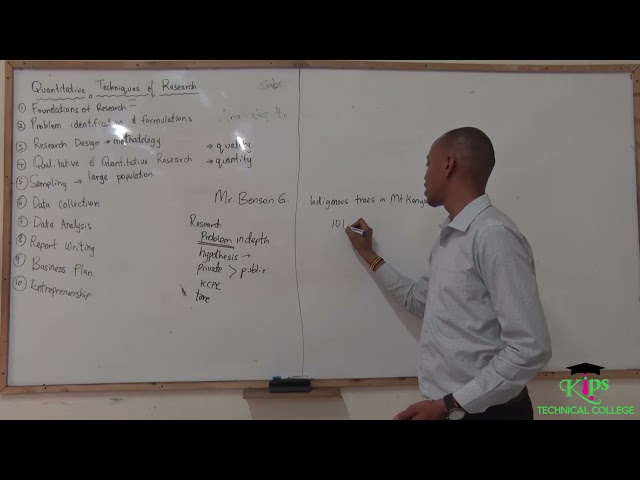 Quantitative Techniques of Research
① Foundations of Research
② Problem identification & formulations
③ Research Design → methodology → quality
④ Qualitative & Quantitative Research → quantity
⑤ Sampling → large population
⑥ Data Collection
⑦ Data Analysis
⑧ Report Writing
⑨ Business Plan
⑩ Entrepreneurship
Mr. Benson G.
Research
Problem indepth
hypothesis →
private > public
KCPE
Indigenous trees in Mt Kenya
101
Kips
TECHNICAL COLLEGE